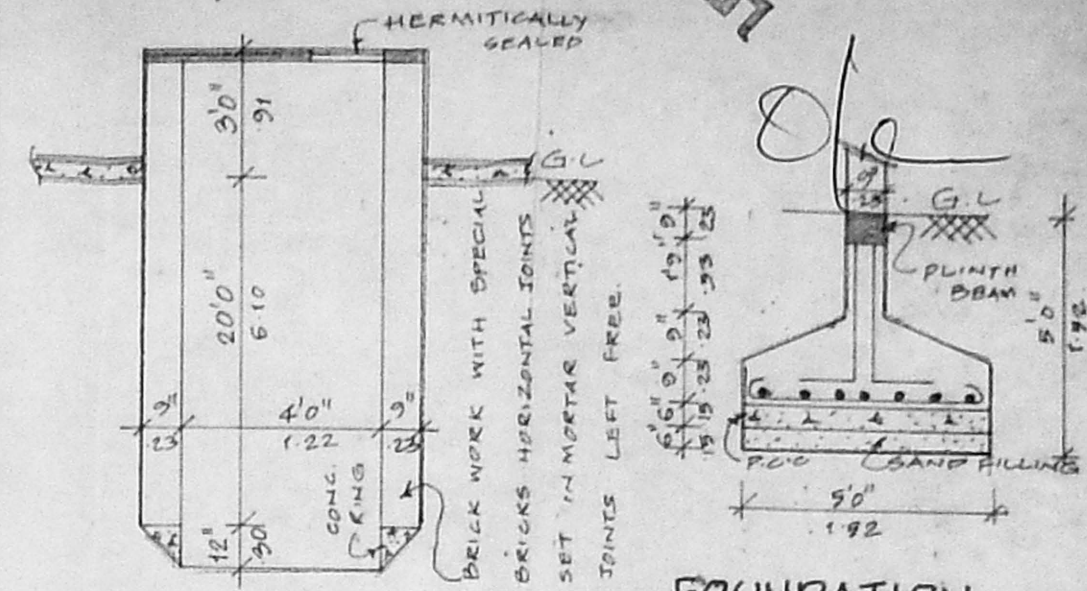 HERMITICALLY
SEALED
3'0"
.91
G.L
20'0"
6.10
9"
.23
4'0"
1.22
9"
.23
12"
.30
CONC.
RING
BRICK WORK WITH SPECIAL
BRICKS HORIZONTAL JOINTS
SET IN MORTAR VERTICAL
JOINTS LEFT FREE.
9"
.23
G.L
PLINTH
BEAM
9"
.23
.53
9"
.23
9"
.23
6"
.15
6"
.15
5'0"
1.52
P.C.C
SAND FILLING
5'0"
1.52
FOUNDATION